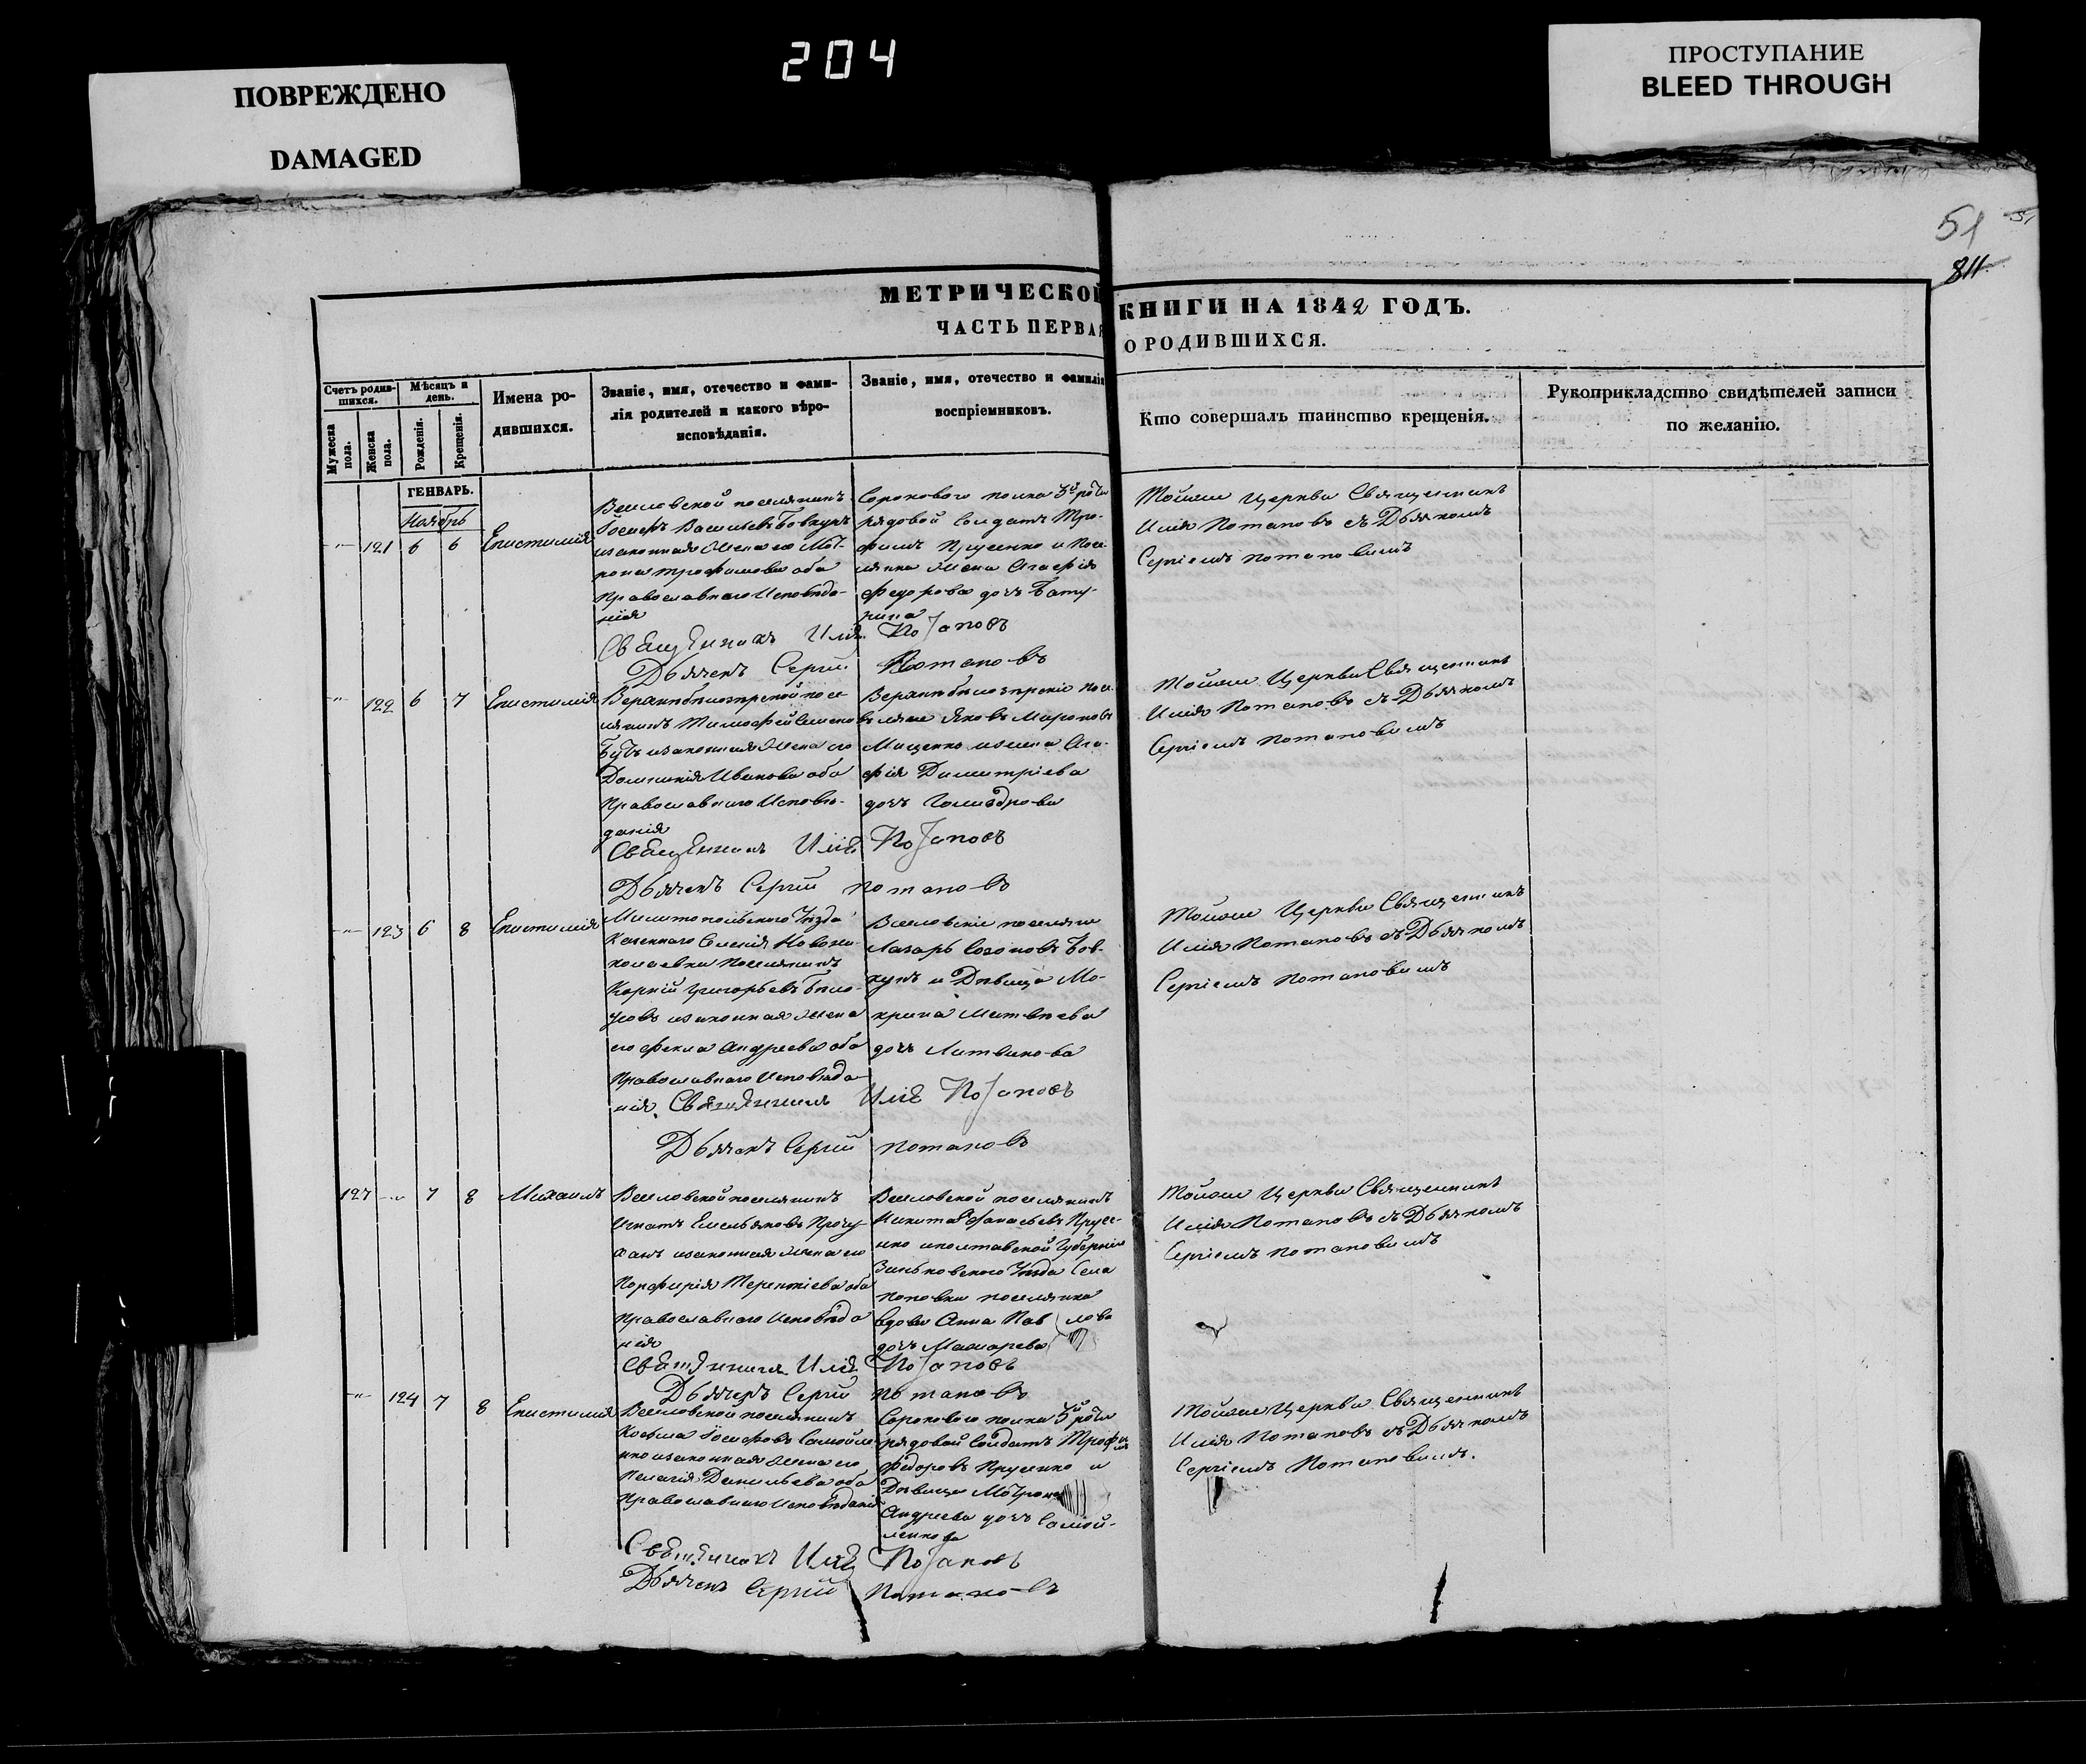 ПОВРЕЖДЕНО
DAMAGED
204
ПРОСТУПАНИЕ
BLEED THROUGH
51
811
МЕТРИЧЕСКОЙ КНИГИ НА 1842 ГОДЪ.
ЧАСТЬ ПЕРВАЯ О РОДИВШИХСЯ.
Счетъ родив-
шихся.
Мѣсяцъ и
день.
Имена ро-
дившихся.
Званіе, имя, отечество и фами-
лія родителей и какого вѣро-
исповѣданія.
Званіе, имя, отечество и фамилія
воспріемниковъ.
Кто совершалъ таинство крещенія.
Рукоприкладство свидѣтелей записи
по желанію.
Мужеска
пола.
Женска
пола.
Рожденія.
Крещенія.
ГЕНВАРЬ.
Ноябрь
121 6 6 Епистимія
Веселовской поселянинъ
Іосифъ Васильевъ Бовкунъ
изаконная жена его Мот-
рона трофимова оба
Православнаго Исповѣда-
нія
Сороковаго полка 3й роты
рядовой Солдатъ Тро-
фимъ Прусенко и Посе-
лянка жена Агафія
федорова дочь
Тойже Церкви Священникъ
Илія Потаповъ съ Дьячкомъ
Сергіемъ Потаповимъ
Священникъ Илія Потаповъ
Дьячекъ Сергій Потаповъ
122 6 7 Епистимія
поселянинъ Тимофей
изаконная жена его
Домникія Иванова оба
Православнаго Исповѣ-
данія
поселяне Яковъ Мироновъ
Мищенко жена Ага-
фія Димитріева
дочь
Тойже Церкви Священникъ
Илія Потаповъ съ Дьячкомъ
Сергіемъ Потаповимъ
Священникъ Илія Потаповъ
Дьячекъ Сергій Потаповъ
123 6 8 Епистимія
Милитопольскаго Уѣзда
Казеннаго Селенія Новони-
колаевки Поселянинъ
Корній Григорьевъ Било-
усовъ изаконная жена
его фекла Андреева оба
Православнаго Исповѣда-
нія
Веселовскіе поселяне
Лазарь Созоновъ Бов-
кунъ и Дѣвица Ма-
крина Матвѣева
дочь Литвинова
Тойже Церкви Священникъ
Илія Потаповъ съ Дьячкомъ
Сергіемъ Потаповимъ
Священникъ Илія Потаповъ
Дьячекъ Сергій Потаповъ
127 7 8 Михаилъ
Веселовской поселянинъ
Игнатъ Емельяновъ
изаконная жена его
Порфирія Терентіева оба
Православнаго Исповѣда
нія
Веселовской поселянинъ
Никита Афанасьевъ Прусе-
нко иполтавской Губерніи
Зиньковского Уѣзда Села
Поповки поселянка
вдова Анна Павлова
дочь Макарева
Тойже Церкви Священникъ
Илія Потаповъ съ Дьячкомъ
Сергіемъ Потаповимъ
Священникъ Илія Потаповъ
Дьячекъ Сергій Потаповъ
124 7 8 Епистимія
Веселовской поселянинъ
Косьма Іосифовъ Самойле
нко изаконная жена его
Пелагія Данильева оба
Православнаго Исповѣданія
Сороковаго полка 3й роты
рядовой Солдатъ Трофимъ
Федоровъ Прусенко и
Дѣвица Мотрона
Андреева дочь Самой-
ленкова
Тойже Церкви Священникъ
Илія Потаповъ съ Дьячкомъ
Сергіемъ Потаповимъ.
Священникъ Илія Потаповъ
Дьячекъ Сергій Потаповъ